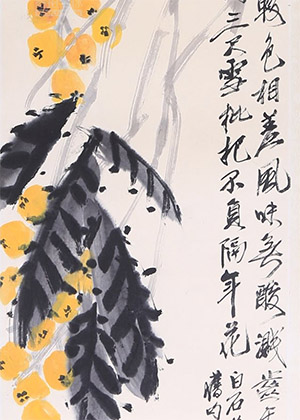 較色相差風味無酸濺齒牙
三尺雪枇杷不負隔年花
白石
舊句